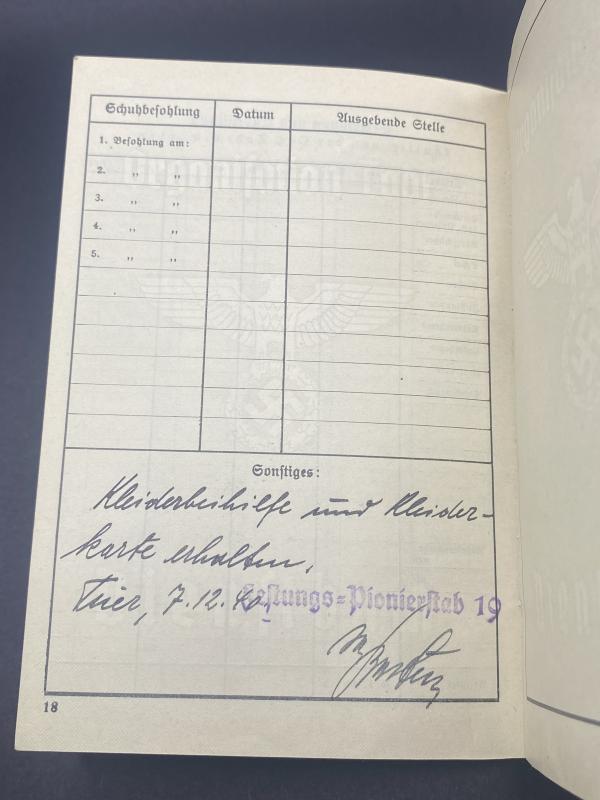 Schuhbesohlung Datum Ausgebende Stelle
1. Besohlung am:
2. „ „
3. „ „
4. „ „
5. „ „
Sonstiges:
Kleiderbeihilfe und Kleider-
karte erhalten.
Trier, 7.12.40. Festungs=Pionierstab 19
18